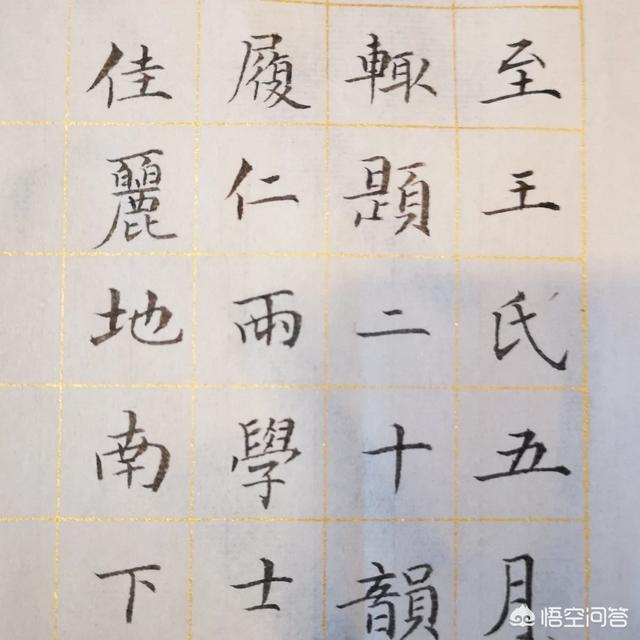 至王氏五月
輙題二十韻
履仁兩學士
佳麗地南下
悟空问答